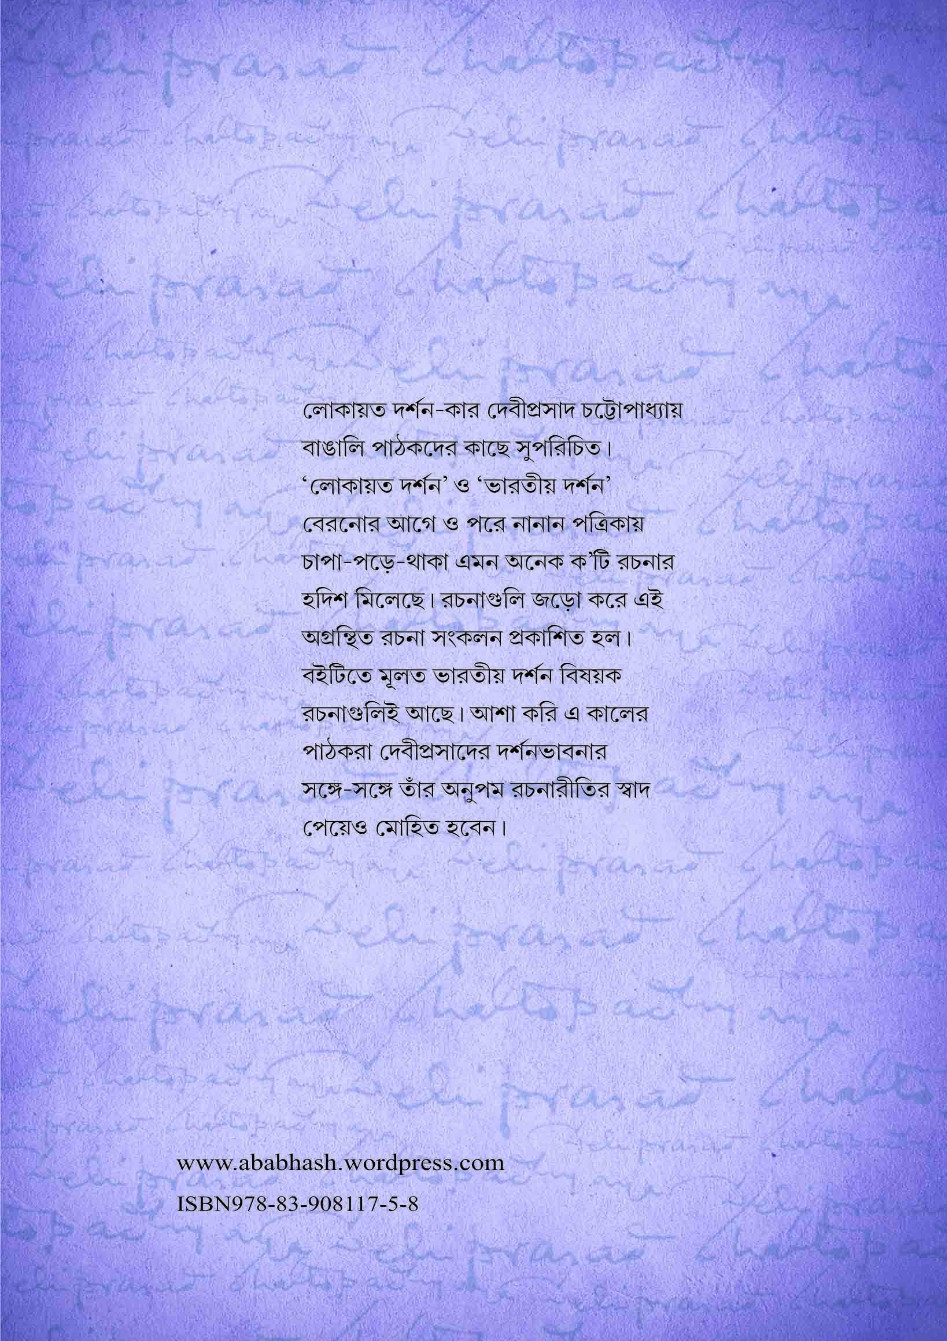 লোকায়ত দর্শন-কার দেবীপ্রসাদ চট্টোপাধ্যায়
বাঙালি পাঠকদের কাছে সুপরিচিত।
‘লোকায়ত দর্শন’ ও ‘ভারতীয় দর্শন’
বেরনোর আগে ও পরে নানান পত্রিকায়
চাপা-পড়ে-থাকা এমন অনেক ক’টি রচনার
হদিশ মিলেছে। রচনাগুলি জড়ো করে এই
অগ্রন্থিত রচনা সংকলন প্রকাশিত হল।
বইটিতে মূলত ভারতীয় দর্শন বিষয়ক
রচনাগুলিই আছে। আশা করি এ কালের
পাঠকরা দেবীপ্রসাদের দর্শনভাবনার
সঙ্গে-সঙ্গে তাঁর অনুপম রচনারীতির স্বাদ
পেয়েও মোহিত হবেন।
www.ababhash.wordpress.com
ISBN978-83-908117-5-8